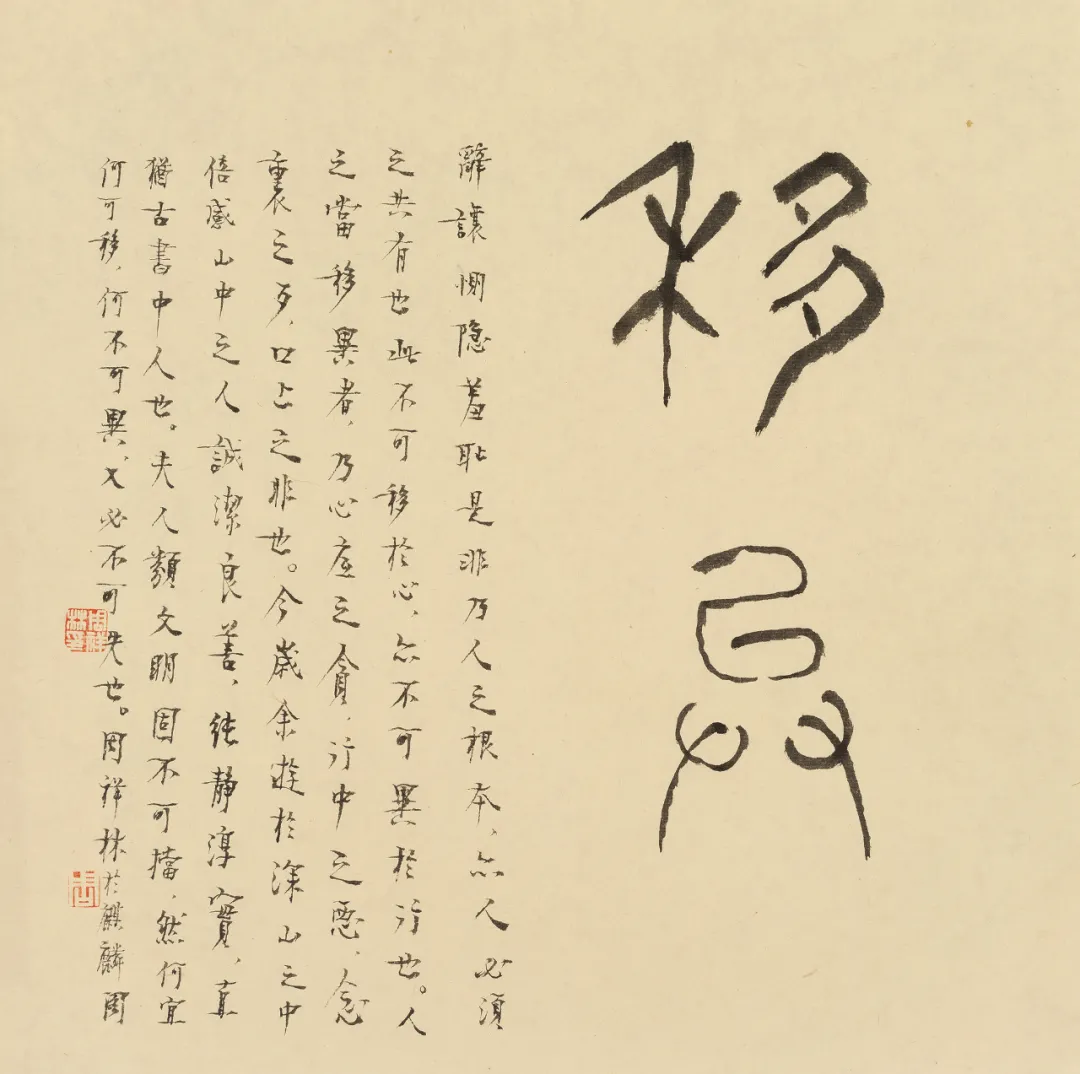 移异
辭讓惻隐羞耻是非乃人之根本、亦人必須
之共有也此不可移於心、亦不可異於行也。人
之當移異者、乃心底之貪、行中之惡、念
裏之歹、口上之非也。今歲余遊於深山之中
倍感山中之人誠潔良善、純靜淳實、真
猶古書中人也。夫人類文明固不可擋、然何宜
何可移、何不可異、又必不可失也。周祥林於麒麟